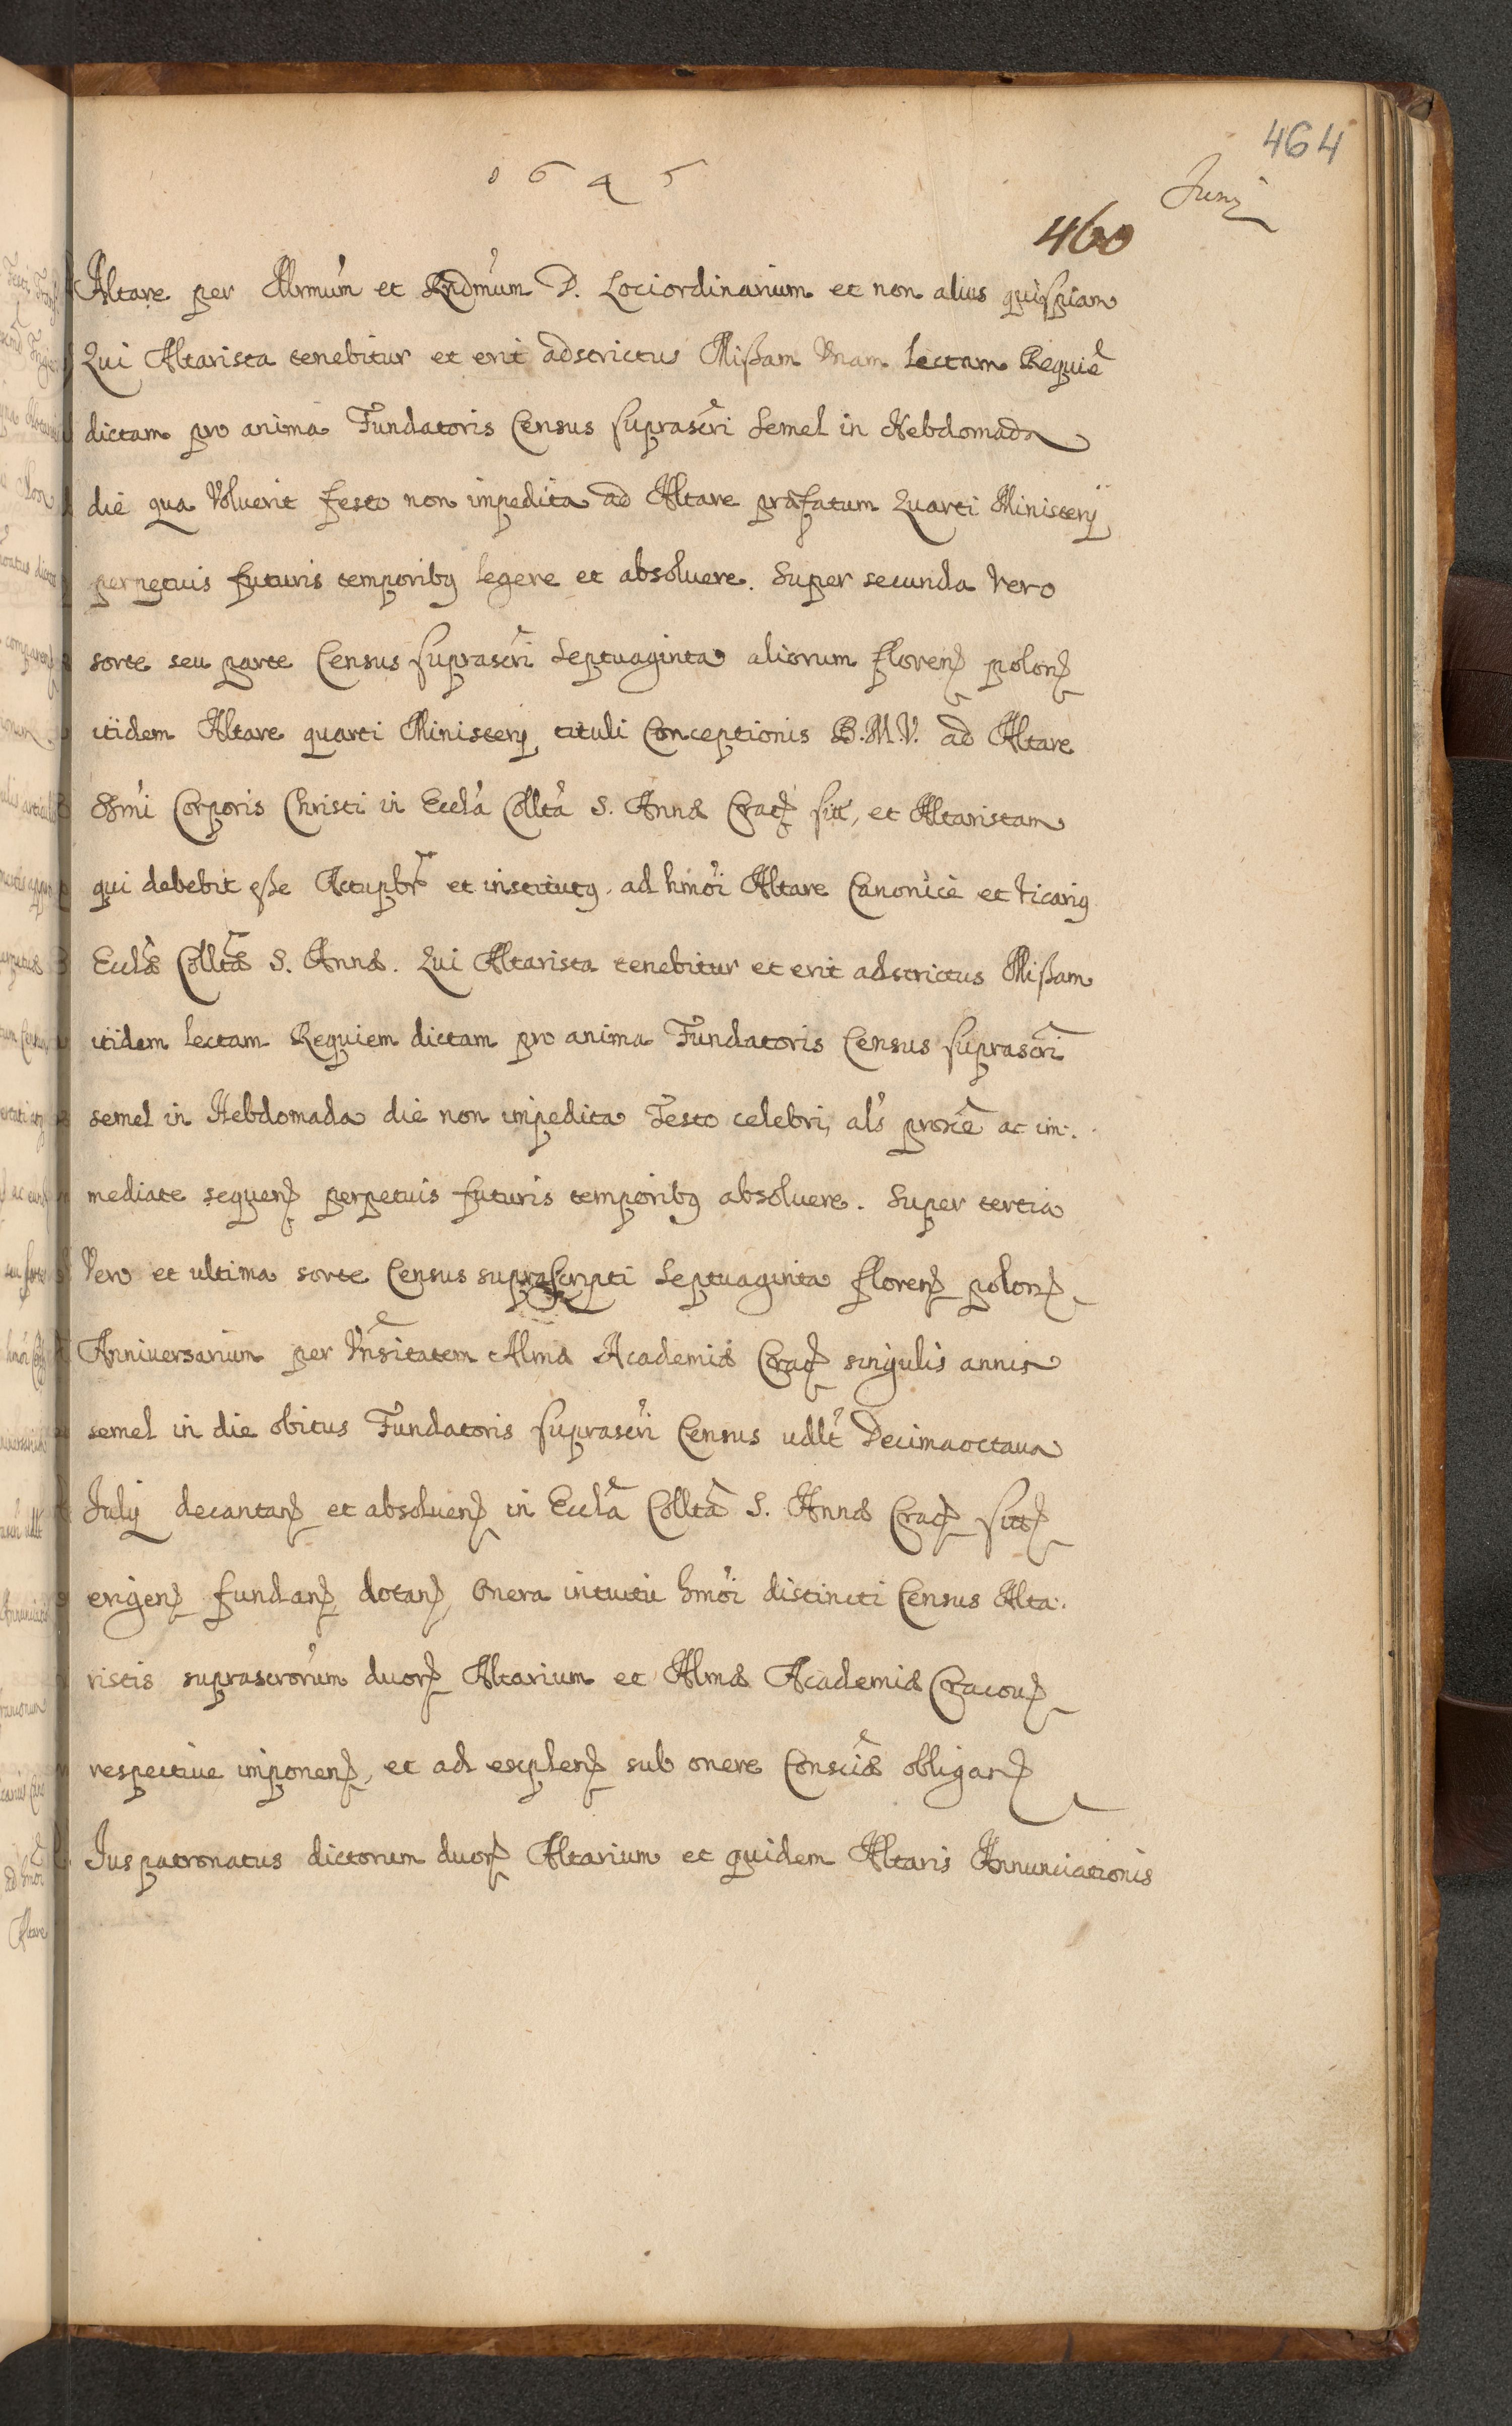 464
1645
Junÿ
460
Altare per Illrmúm et Rndmúm D. Lociordinarium et non alius quispiam
Qui Altarista tenebitur et erit adstrictus Missam Vnam lectam Requiē
dictam pro anima Fundatoris Census suprascri semel in Hebdomada
die qua Voluerit festo non impedita ad Altare præfatum Quarti Ministerÿ
perpetuis futuris temporibq legere et absoluere. Super secunda Vero
sorte seu parte Census suprascri Septuaginta aliorum floren polon
itidem Altare quarti Ministerÿ tituli Conceptionis B.M.V. ad Altare
SSmi Corporis Christi in Eccla Collta S. Annæ Crac sit, et Altaristam
qui debebit esse et institutq ad hmoi Altare Canonicè et Vicariq
Ecclæ Colltæ S. Annæ. Qui Altarista tenebitur et erit adstrictus Missam
itidem lectam Requiem dictam pro anima Fundatoris Census suprascri
semel in Hebdomada die non impedita Festo celebri, als proxe ac im:
mediate sequen perpetuis futuris temporibq absoluere. Super tertia
Vero et ultima sorte Census suprascripti Septuaginta floren polon
Anniuersarium per Vnsitatem Almæ Academiæ Crac singulis annis
semel in die obitus Fundatoris suprascri Census udlt Decimaoctaua
Julÿ decantan et absoluen in Eccla Collta S. Annæ Crac sitt
erigen fundan dotan Onera intuitu hmoi distincti Census Alta:
ristis suprascrorum duor Altarium et Almæ Academiæ Cracou
respectiue imponen, et ad explen sub onere Consciæ obligan
Juspatronatus dictorum duor Altarium et quidem Altaris Annunciationis